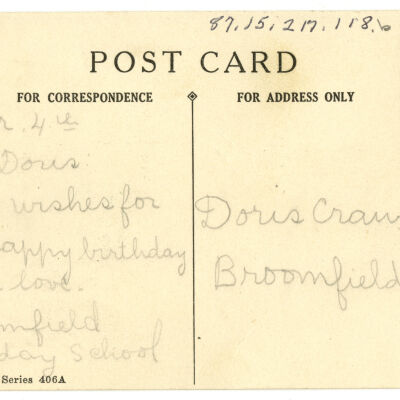 87.15.217.118.b
POST CARD
FOR CORRESPONDENCE
FOR ADDRESS ONLY
r. 4th
Doris
wishes for
appy birthday
love.
mfield
day School
Doris Cran
Broomfield
Series 406A